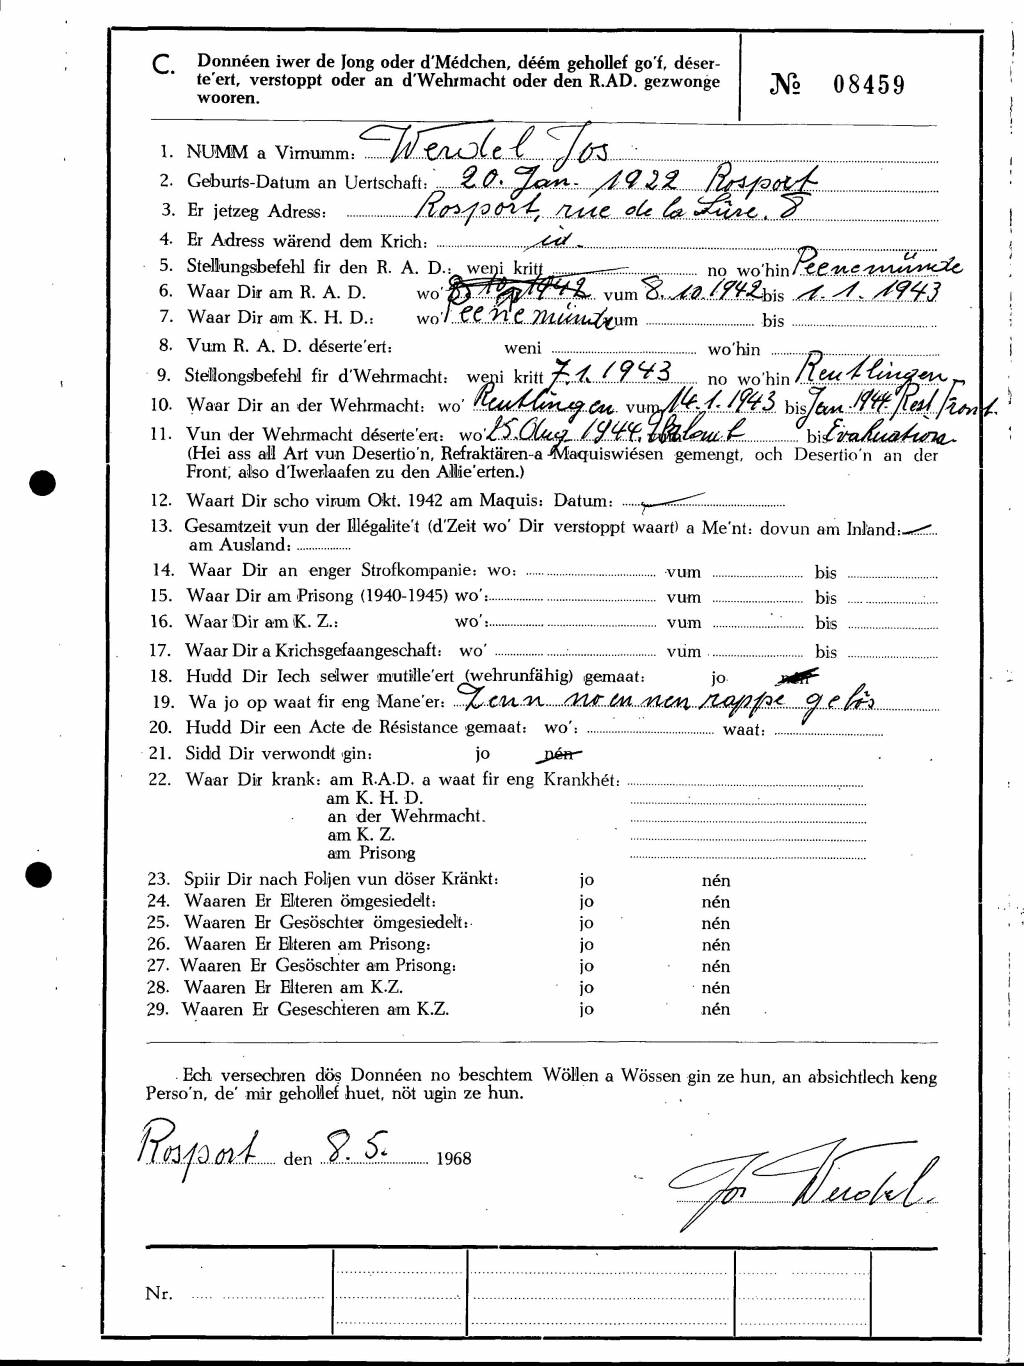 C. Donnéen iwer de Jong oder d'Médchen, déém gehollef go'f, déser-
te'ert, verstoppt oder an d'Wehrmacht oder den R.AD. gezwonge
wooren.
№ 08459
1. NUMM a Virnumm: Werdel Jos
2. Geburts-Datum an Uertschaft: 20. Jan. 1922 Rosport
3. Er jetzeg Adress: Rosport, rue de la Sûre. 8
4. Er Adress wärend dem Krich: id.
5. Stellungsbefehl fir den R. A. D.: weni kritt no wo'hin Peenemünde
6. Waar Dir am R. A. D. wo' 8 10 1942 vum 8. 10. 1942 bis 1. 1. 1943
7. Waar Dir am K. H. D.: wo' Peenemünde vum bis
8. Vum R. A. D. déserte'ert: weni wo'hin
9. Stellongsbefehl fir d'Wehrmacht: weni kritt 7.1.1943 no wo'hin Reutlingen
10. Waar Dir an der Wehrmacht: wo' Reutlingen vum 14.1.1943 bis Jan. 1944 Rest Front.
11. Vun der Wehrmacht déserte'ert: wo' 25. Aug 1944. bis Evakuation
(Hei ass all Art vun Desertio'n, Refraktären-a Maquiswiésen gemengt, och Desertio'n an der
Front, also d'Iwerlaafen zu den Allie'erten.)
12. Waart Dir scho virum Okt. 1942 am Maquis: Datum:
13. Gesamtzeit vun der Illégalite't (d'Zeit wo' Dir verstoppt waart) a Me'nt: dovun am Inland:
am Ausland:
14. Waar Dir an enger Strofkompanie: wo: vum bis
15. Waar Dir am Prisong (1940-1945) wo': vum bis
16. Waar Dir am K. Z.: wo': vum bis
17. Waar Dir a Krichsgefaangeschaft: wo' vum bis
18. Hudd Dir Iech selwer mutille'ert (wehrunfähig) gemaat: jo nén
19. Wa jo op waat fir eng Mane'er: Zenn no en nen rappe gelôs
20. Hudd Dir een Acte de Résistance gemaat: wo': waat:
21. Sidd Dir verwondt gin: jo nén
22. Waar Dir krank: am R.A.D. a waat fir eng Krankhét:
am K. H. D.
an der Wehrmacht.
am K. Z.
am Prisong
23. Spiir Dir nach Foljen vun döser Kränkt: jo nén
24. Waaren Er Elteren ömgesiedelt: jo nén
25. Waaren Er Gesöschter ömgesiedelt: jo nén
26. Waaren Er Elteren am Prisong: jo nén
27. Waaren Er Gesöschter am Prisong: jo nén
28. Waaren Er Elteren am K.Z. jo nén
29. Waaren Er Geseschteren am K.Z. jo nén
Ech versechren dös Donnéen no beschtem Wöllen a Wössen gin ze hun, an absichtlech keng
Perso'n, de' mir gehollef huet, nöt ugin ze hun.
Rosport den 8. 5. 1968
Jos Werdel.
Nr.